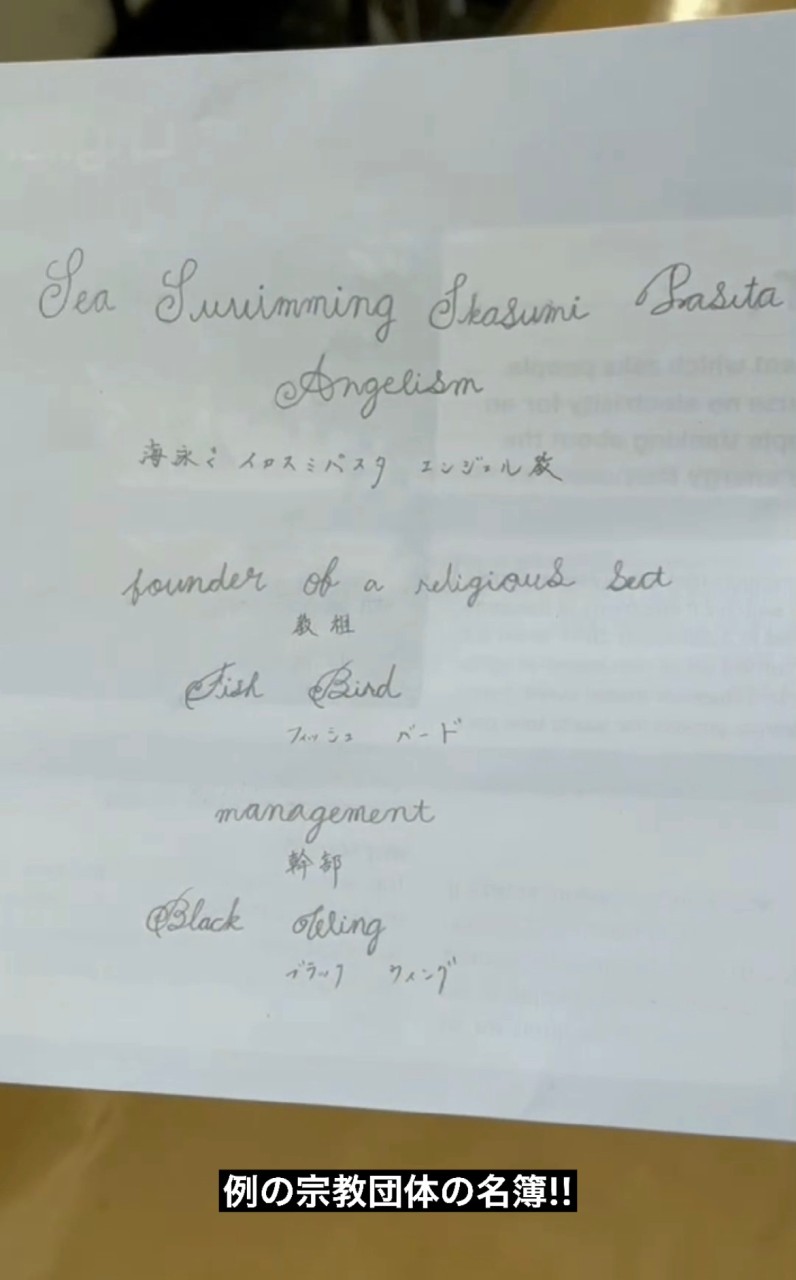 Sea Swimming Ikasumi Pasuta
Angelism
海泳ぐ イカスミパスタ エンジェル教
founder of a religious sect
教祖
Fish Bird
フィッシュ バード
management
幹部
Black Wing
ブラック ウィング
例の宗教団体の名簿!!